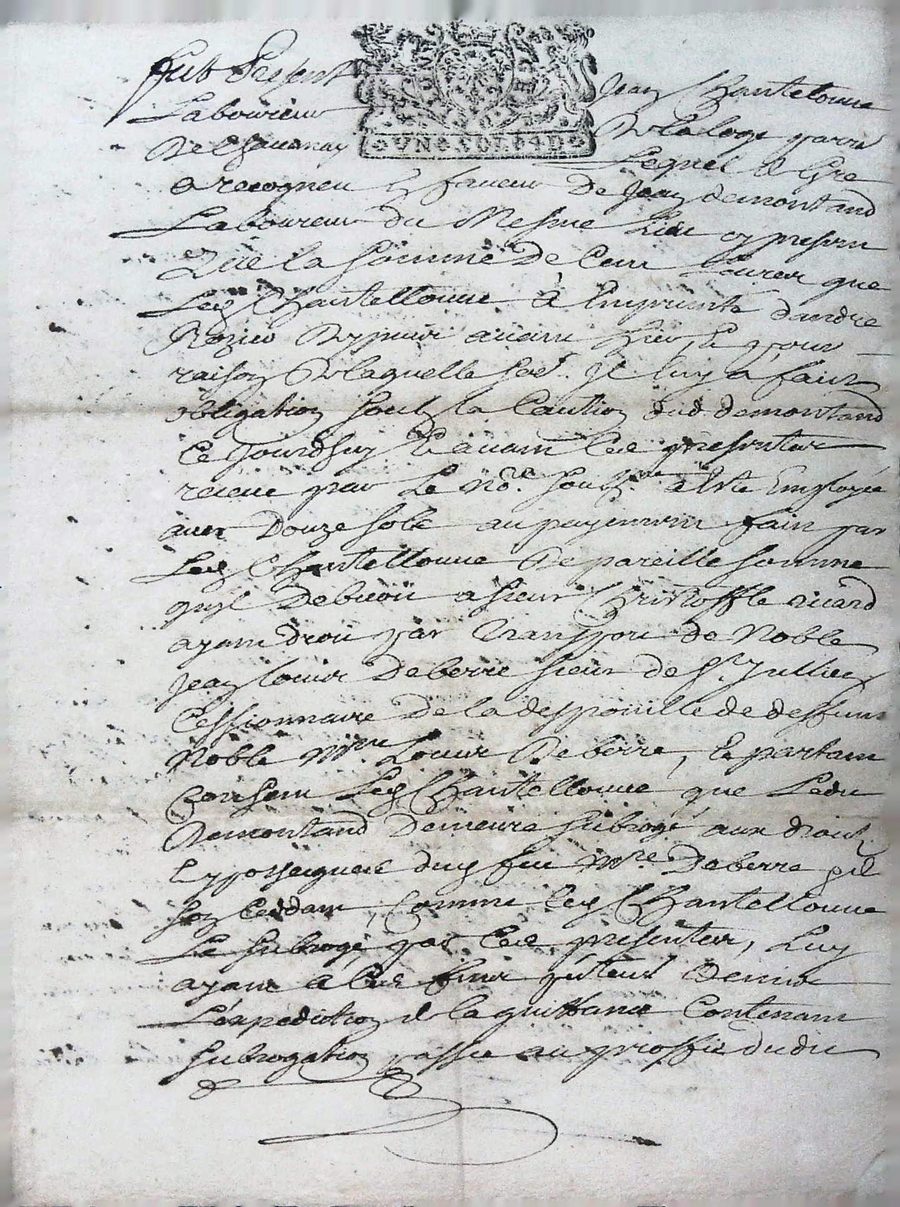 fut present Jean Chantelonne
Laboureur de la loge parr
de Chavanay Lequel de Gre
a recogneu en faveur de Jean demontand
Laboureur du Mesme Lieu cy present
Que la somme de Cent Livres que
Led Chantellonne à Emprunté dandré
Rozier Depuis avant hier, Et pour
raison de laquelle som. Il luy a fait
obligation soubz la Caution dud demontand
Ce Jourdhuy Et avant Ces presentes
receue par Le No.re soubz.ne a Esté Employée
avec Douze sols au payement fait par
Led Chantellonne De pareille somme
quil Debvoit a sieur Christoffle
ayant droit par Transport de Noble
Jean Louis Deberre sieur de St. Jullien
Cessionnaire de la despouille de deffunt
Noble Mre Louis Deberre, Et partant
Consent Led Chantellonne que Ledit
Demontand Demeure subrogé aux droits
dud feu Mre Deberre
son Ceddant, Comme led Chantellonne
Le subroge par Ces presentes, Luy
ayant a Ces fins Remis
L'expedition de la quittance Contenant
subrogation passée au proffit dudit